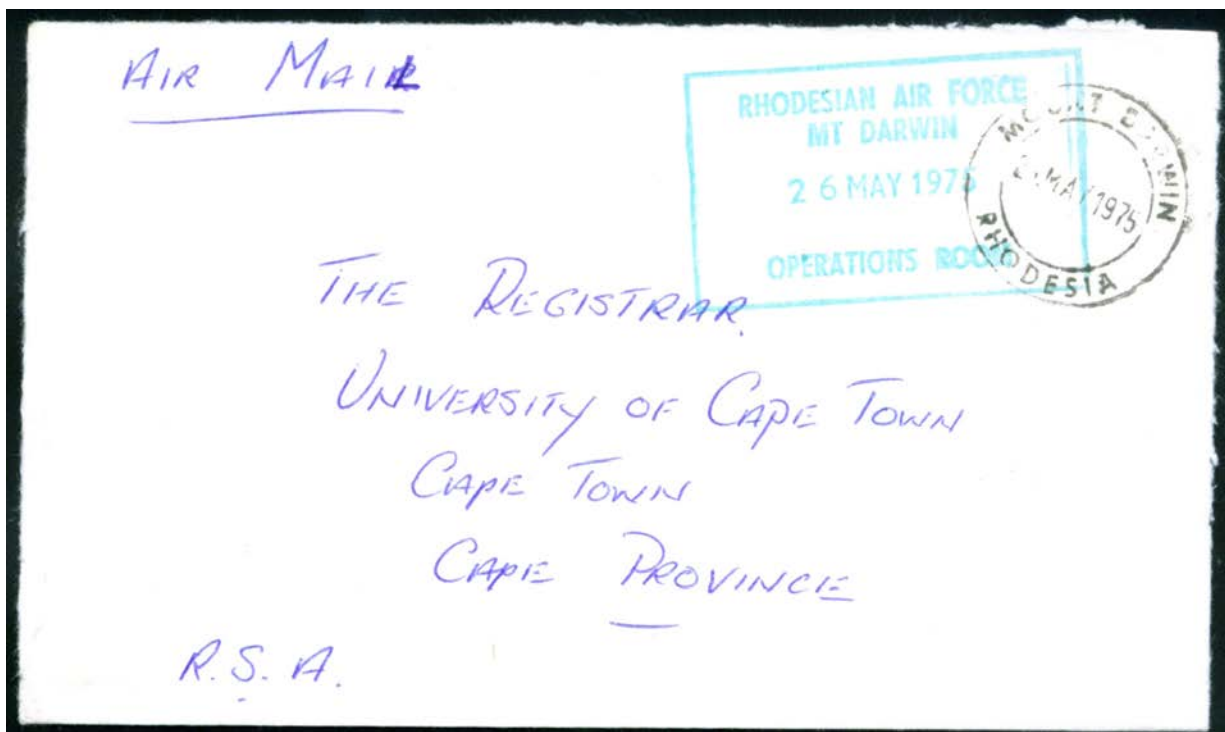 AIR MAIL
RHODESIAN AIR FORCE
MT DARWIN
26 MAY 1975
OPERATIONS ROOM
MOUNT DARWIN
MAY 1975
RHODESIA
THE REGISTRAR.
UNIVERSITY OF CAPE TOWN
CAPE TOWN
CAPE PROVINCE
R.S.A.